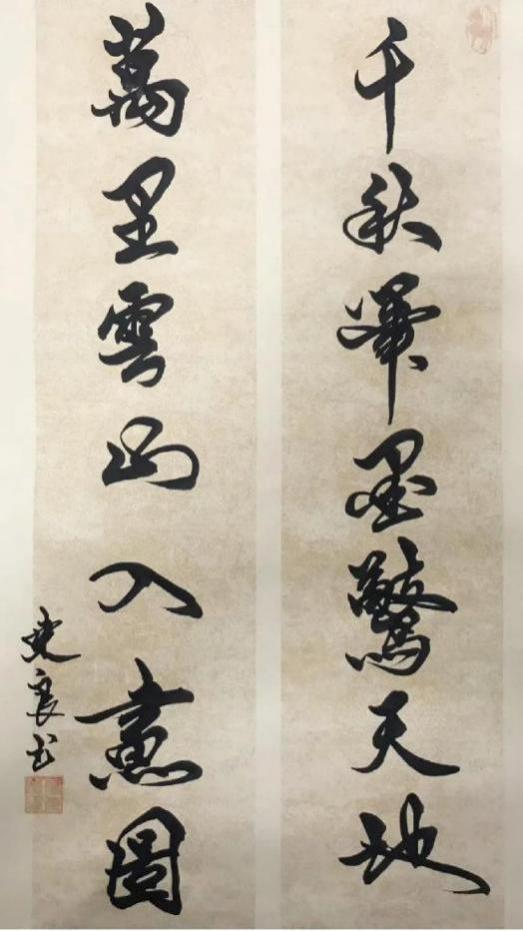 千秋筆墨驚天地
萬里雲山入畫圖
史良书